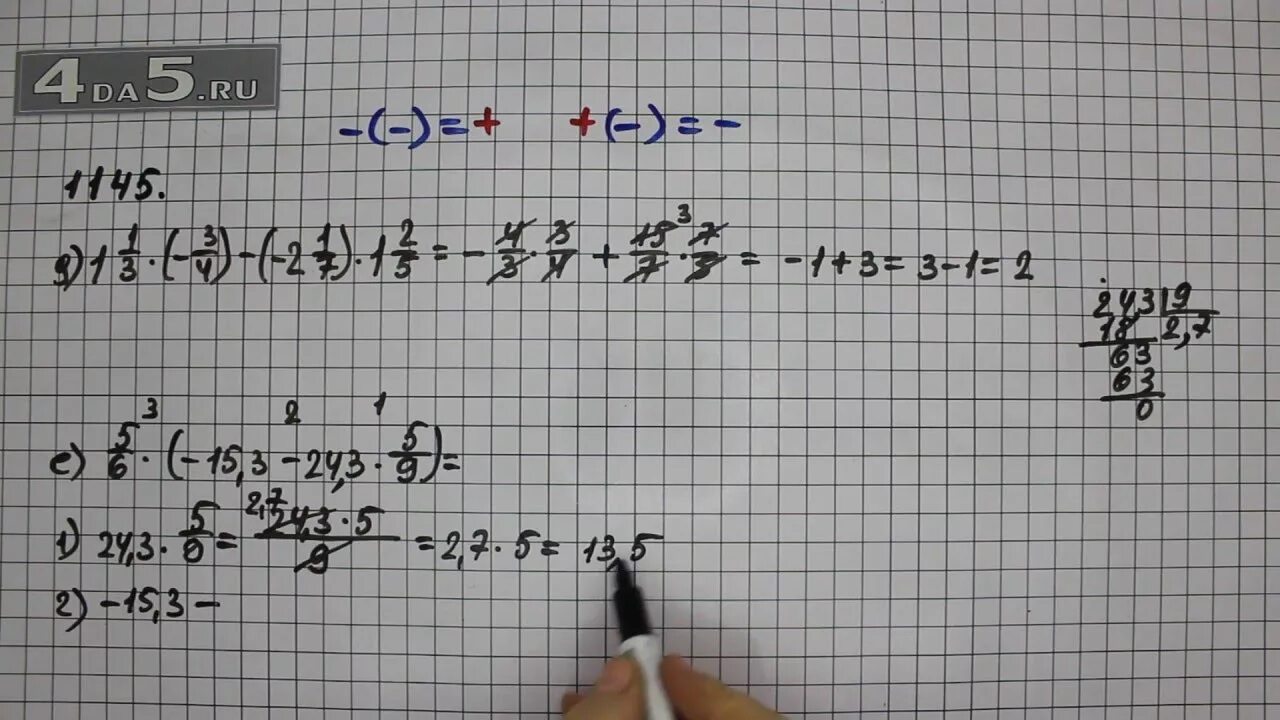 4DA5.RU
-(-)=+ +(-)=-
1145.
д) 1 1/3 · (-3/4) - (-2 1/7) · 1 2/5 = - 4/3 · 3/4 + 15/7 · 7/5 3 = -1+3=3-1=2
24,3 | 9
18 2,7
63
63
0
3 2 1
е) 5/6 · (-15,3 - 24,3 · 5/9) =
1) 24,3 · 5/9 = 2,7 24,3·5/9 = 2,7 · 5 = 13,5
2) -15,3 -